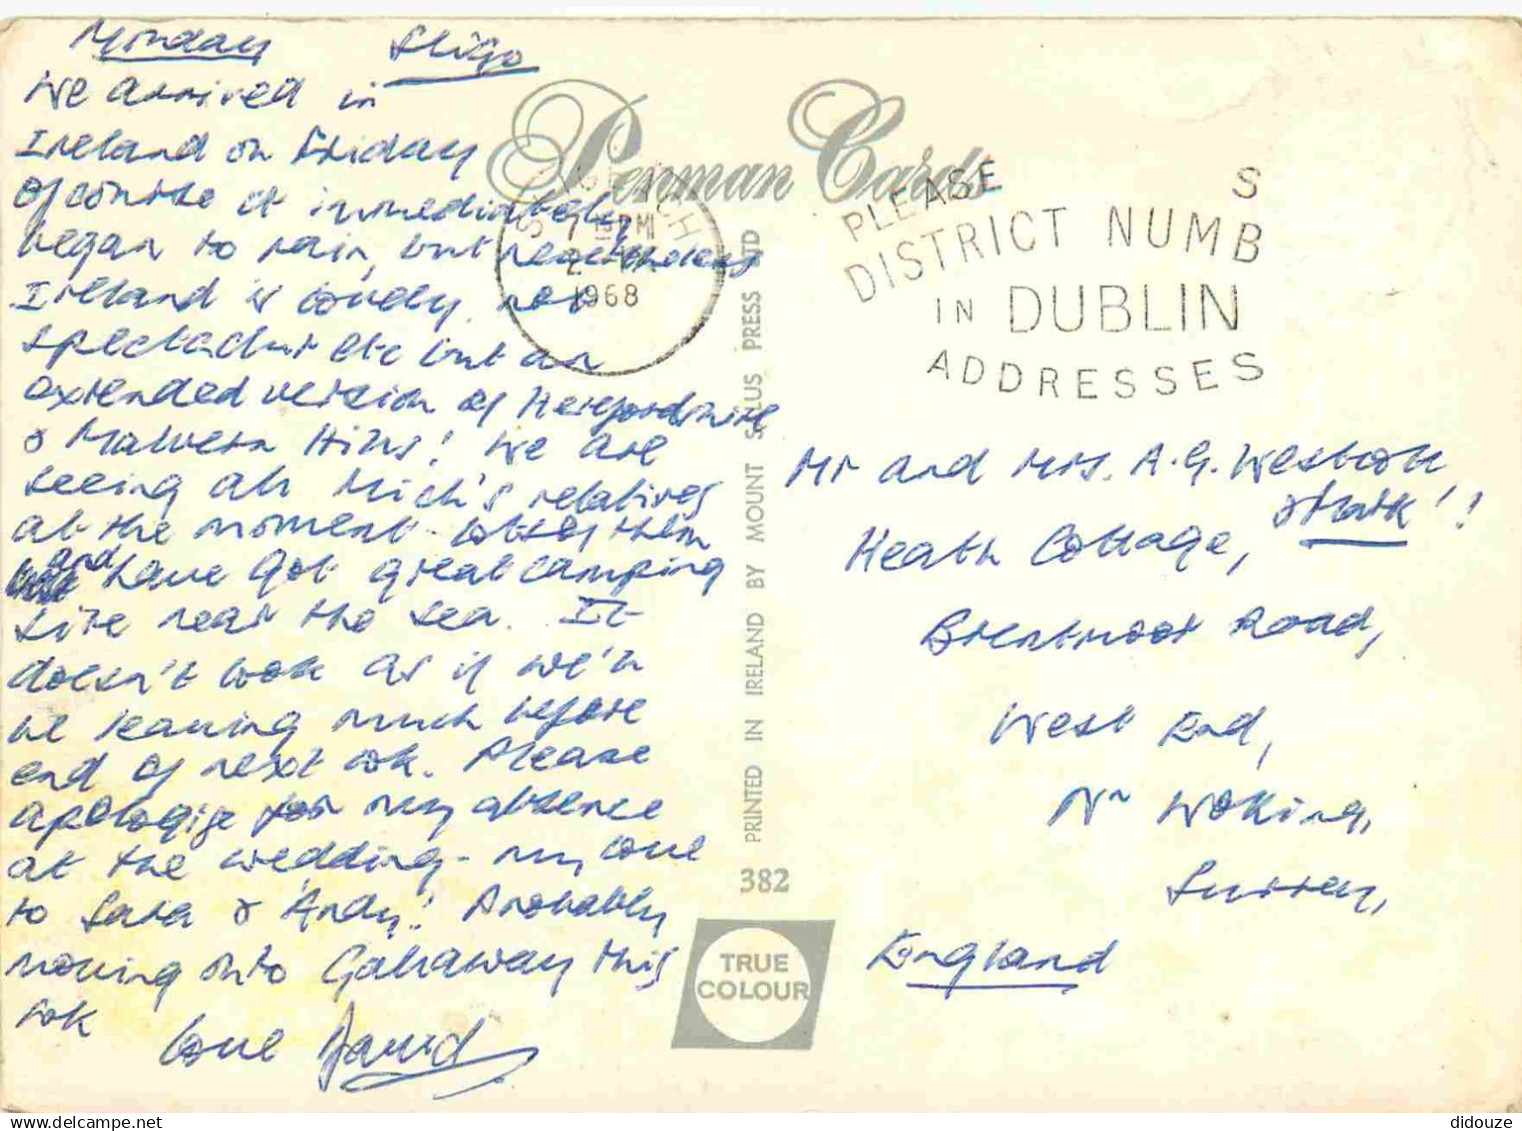 Monday Sligo
We arrived in
Ireland on Friday
Of course it immediately
began to rain, but nevertheless
Ireland is lovely, not
spectacular etc but an
extended version of Herefordshire
& Malvern Hills! We are
seeing all Mich's relatives
at the moment - lots of them
and have got great camping
site near the sea. It
doesn't look as if we'll
be leaving much before
end of next wk. Please
apologize for my absence
at the wedding - my love
to Sara & Andy! Probably
moving onto Gallaway this
wk
love David
Penman Cards
SLIGEACH
1968
PLEASE S
DISTRICT NUMB
IN DUBLIN
ADDRESSES
Mr and Mrs. A.G. Westcott
& Mark!!
Heath Cottage,
Brentmoor Road,
West End,
Nr Woking,
Surrey,
England
PRINTED IN IRELAND BY MOUNT SALUS PRESS LTD
382
TRUE
COLOUR
didouze